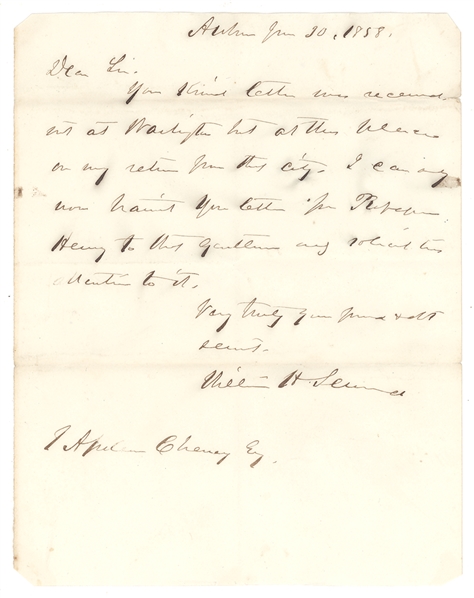 Auburn Jun 30, 1858.
Dear Sir.
Your kind letter was received
not at Washington but at this place
on my return from that city. I can only
now transmit your letter for Professor
Henry to that gentleman and solicit his
attention to it.
Very truly your friend & obt
servt.
William H. Seward
T Apoleon Cheney Esq.